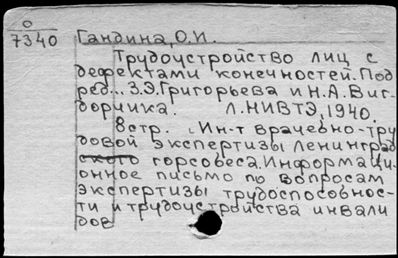 О
7340 Гандина, О.И.
Трудоустройство лиц с
дефектами конечностей. Под
ред... З.Э.Григорьева и Н.А.Виг-
дорчика. Л.НИВТЭ, 1940.
8стр. Ин-т врачебно-тру
довой экспертизы Ленинград
ского горсовеса. Информаци-
онное письмо по вопросам
экспертизы трудоспособнос-
ти и трудоустройства инвали
дов